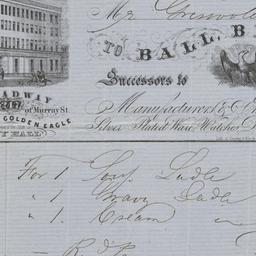 Mr Griswold
TO BALL, B
Successors to
ADWAY
247
of Murray St.
GOLDEN EAGLE
Y HALL
Manufacturers &
Silver Plated Ware, Watches
For 1 Soup Ladle
" 1 Gravy Ladle
" 1 Cream "